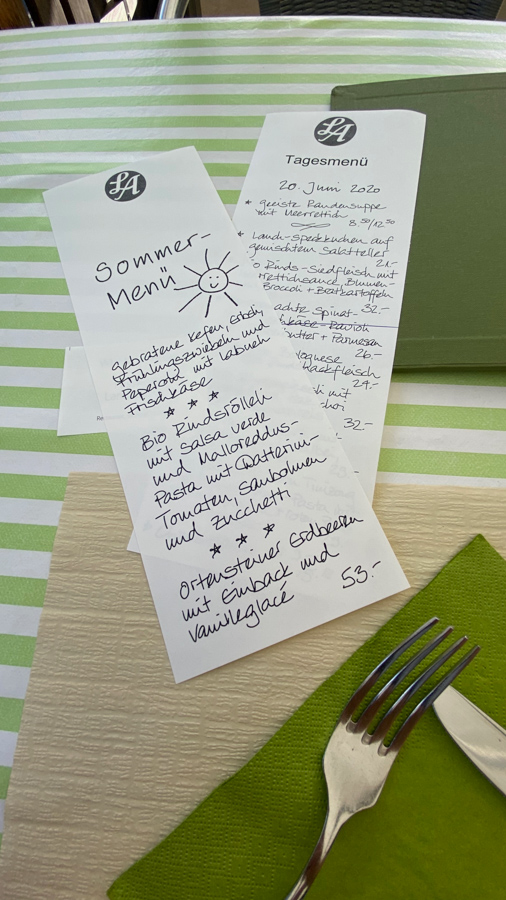 LA
Sommer-
Menü
gebratene Kefen, Erbsli,
Frühlingszwiebeln und
Peperoni mit Labneh
Frischkäse
Bio Rindsrölleli
mit Salsa verde
und Malloreddus-
Pasta mit Datterini-
Tomaten, Saubohnen
und Zucchetti
Ortensteiner Erdbeeren
mit Einback und
Vanilleglace
53.-
LA
Tagesmenü
20. Juni 2020
* geeiste Randensuppe
mit Meerrettich 8.50/12.50
* Lauch-Speckkuchen auf
gemischtem Salatteller
21.-
o Rinds-Siedfleisch mit
rettichsauce, Blumen-
Broccoli + Bratkartoffeln
32.-
achte Spinat-
käse-Ravioli
butter + Parmesan
26.-
lognese
hackfleisch
24.-
ch mit
choi
32.-